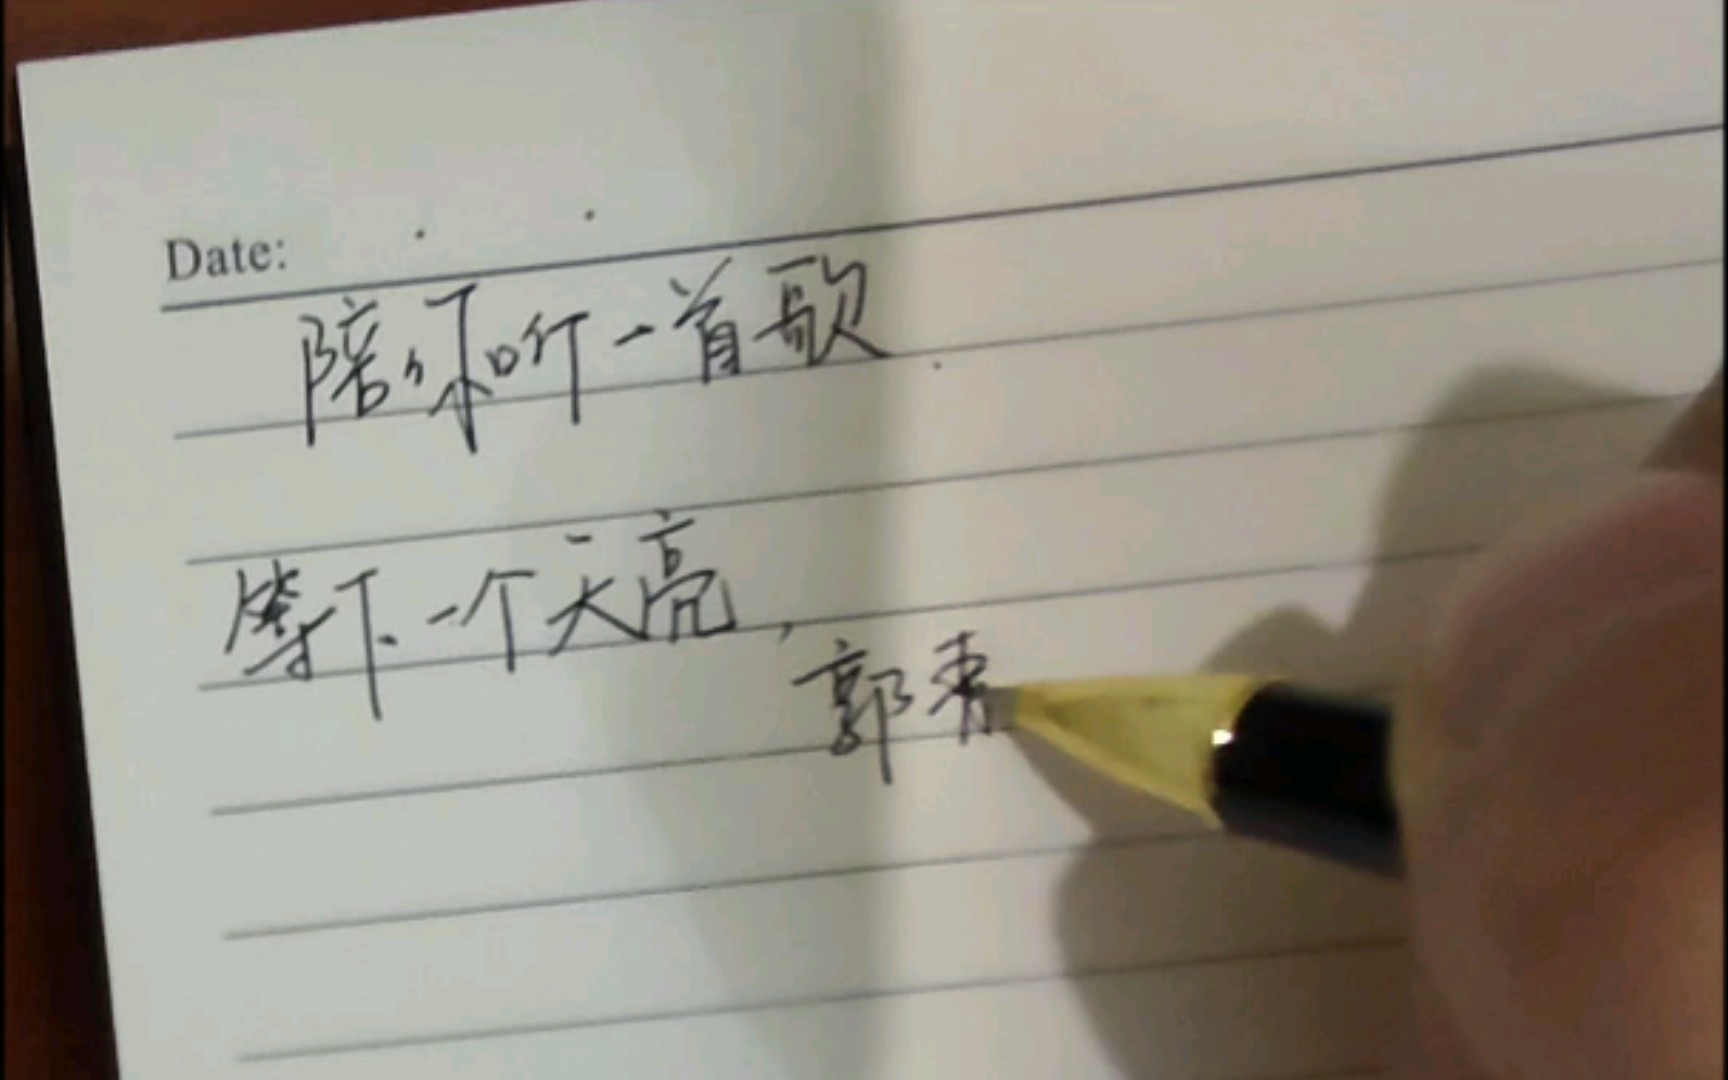 Date:
陪你听一首歌
等下一个天亮,
郭青